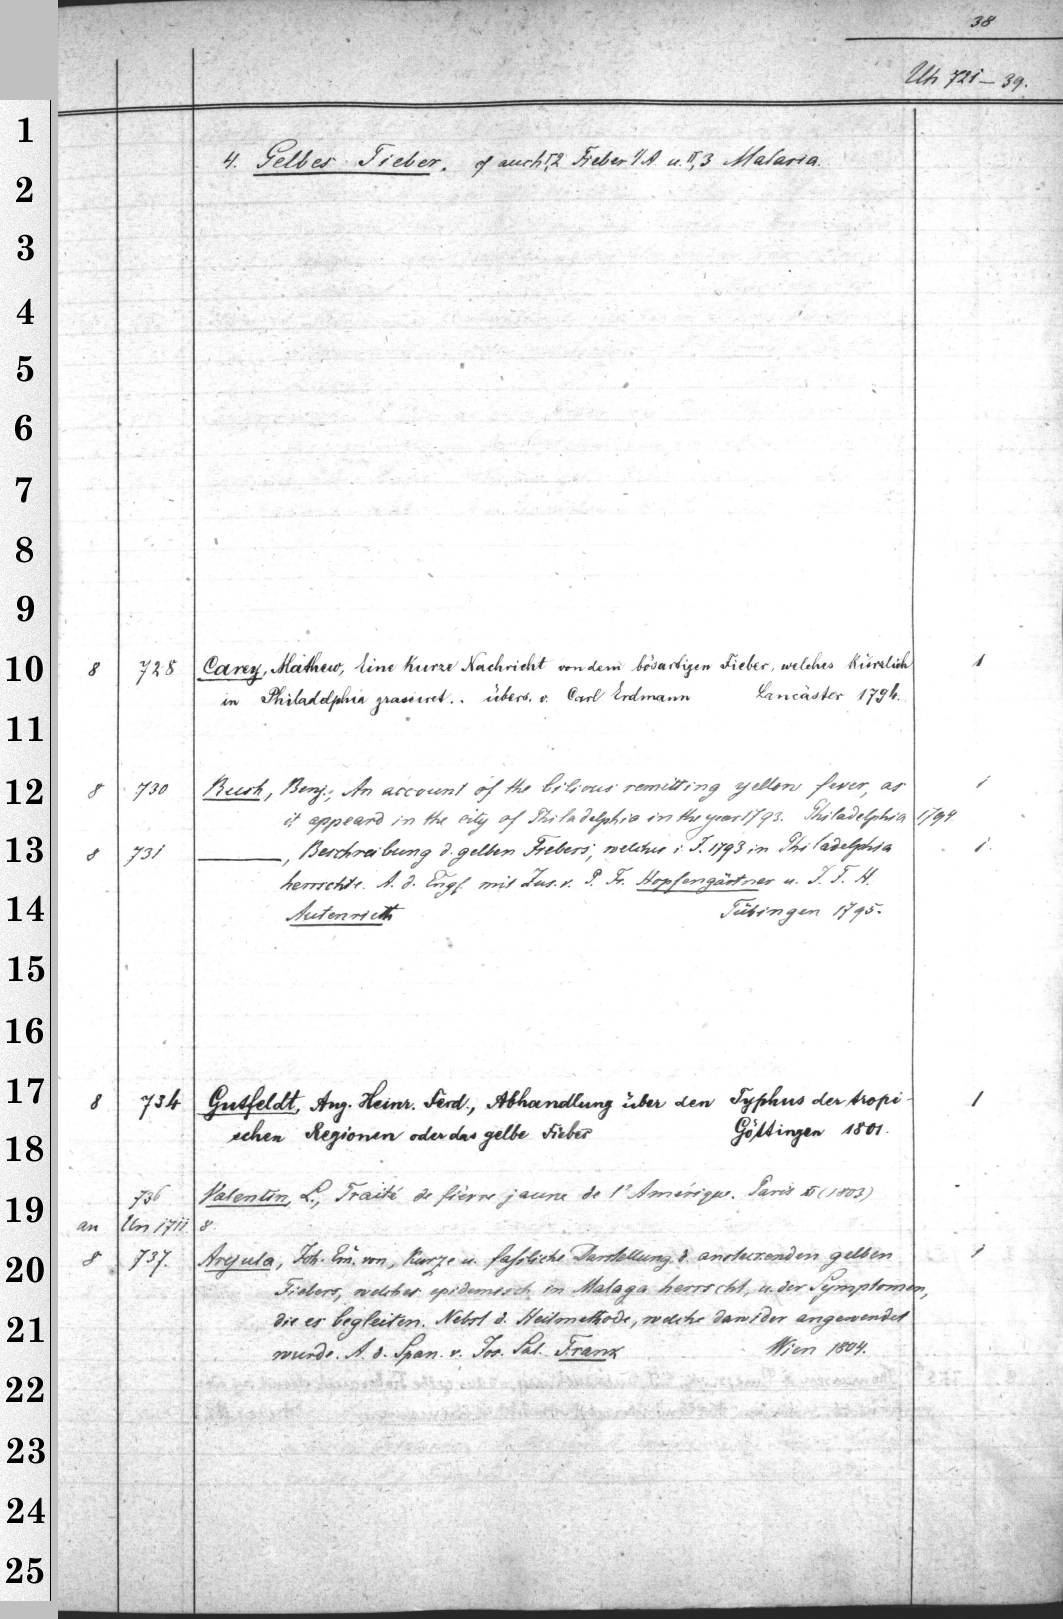 38
Uh 721-39.
4. Gelbes Fieber. cf auch I,2 Fieber II A u. II,3 Malaria.
8 728 Carey, Mathew, Eine Kurze Nachricht von dem bösartigen Fieber, welches Kürzlich 1
in Philadelphia grassiret.. übers. v. Carl Erdmann Lancäster 1794.
8 730 Rush, Benj., An account of the bilious remitting yellow fever, as 1
it appeard in the city of Philadelphia in the year 1793. Philadelphia 1794
8 731 ———, Beschreibung d. gelben Fiebers, welches i. J. 1793 in Philadelphia 1.
herrschte. A. d. Engl. mit Zus. v. P. Fr. Hopfengärtner u. J. F. H.
Autenrieth Tübingen 1795.
8 734 Gutfeldt, Aug. Heinr. Ferd., Abhandlung über den Typhus der tropi- 1
schen Regionen oder das gelbe Fieber Göttingen 1801.
736 Valentin, L., Traité de fièvre jaune de l'Amérique. Paris XI (1803) -
an Un 1711 8.
8 737. Arejula, Joh. Em. von, Kurze u. faßliche Darstellung d. ansteckenden gelben 1
Fiebers, welches epidemisch in Malaga herrscht, u. der Symptomen,
die es begleiten. Nebst d. Heilmethode, welche dawider angewendet
wurde. A. d. Span. v. Jos. Sal. Frank Wien 1804.
1
2
3
4
5
6
7
8
9
10
11
12
13
14
15
16
17
18
19
20
21
22
23
24
25